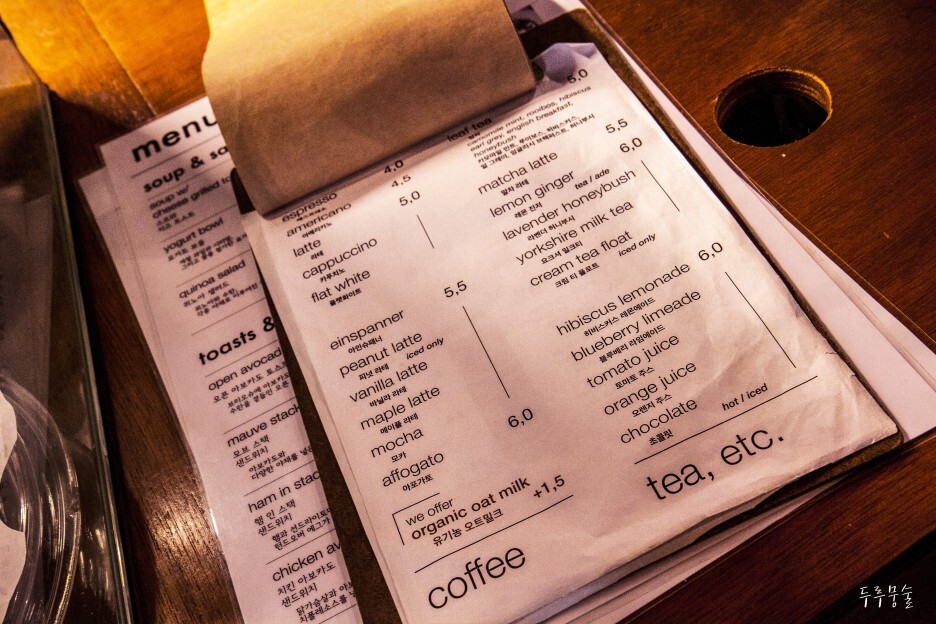 menu
soup & sa
soup w/
cheese grilled to
스프와
치즈 토스트
yogurt bowl
요거트 볼
quinoa salad
퀴노아 샐러드
toasts &
open avocad
오픈 아보카도 토스
mauve stack
모브 스택
샌드위치
아보카도와
다양한 야채를 넣은
ham in stac
햄 인 스택
샌드위치
chicken av
치킨 아보카도
샌드위치
닭가슴살과 아보
espresso 4,0
에스프레소
americano 4,5
아메리카노
latte 5,0
라떼
cappuccino
카푸치노
flat white
플랫화이트
einspanner 5,5
아인슈패너
peanut latte iced only
피넛 라떼
vanilla latte
바닐라 라떼
maple latte
메이플 라떼
mocha 6,0
모카
affogato
아포가토
we offer
organic oat milk +1,5
유기농 오트밀크
coffee
leaf tea 5,0
camomile mint, rooibos, hibiscus
earl grey, english breakfast,
honeybush
카모마일 민트, 루이보스, 히비스커스,
얼 그레이, 잉글리시 브렉퍼스트, 허니부시
matcha latte 5,5
말차 라떼
lemon ginger tea / ade 6,0
레몬 진저
lavender honeybush
라벤더 허니부시
yorkshire milk tea
요크셔 밀크티
cream tea float iced only
크림 티 플로트
hibiscus lemonade 6,0
히비스커스 레몬에이드
blueberry limeade
블루베리 라임에이드
tomato juice
토마토 주스
orange juice
오렌지 주스
chocolate hot / iced
초콜릿
tea, etc.
두루뭉술